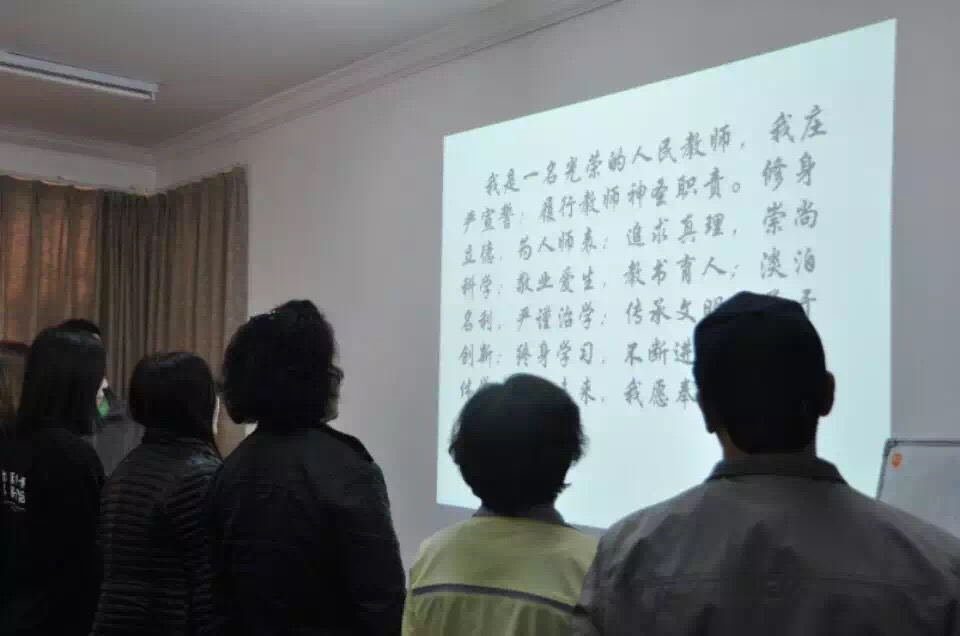 我是一名光荣的人民教师，我庄
严宣誓：履行教师神圣职责。修身
立德，为人师表；追求真理，崇尚
科学；敬业爱生，教书育人；淡泊
名利，严谨治学；传承文明
创新；终身学习，不断进
来，我愿奉